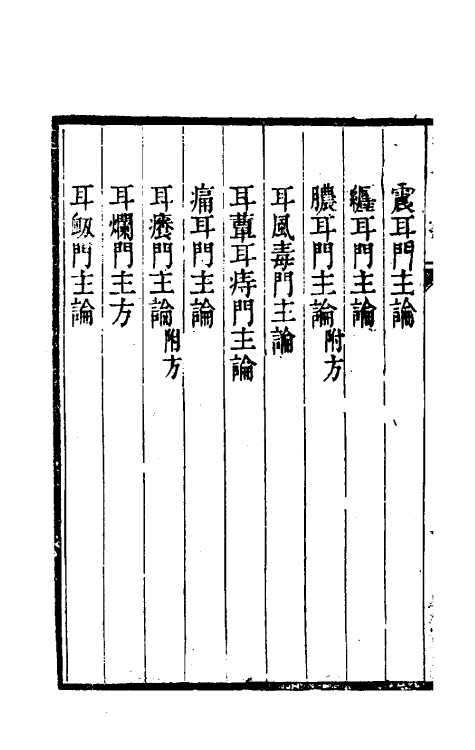 震耳門主論
纏耳門主論
膿耳門主論附方
耳風毒門主論
耳蕈耳痔門主論
痛耳門主論
耳癢門主論附方
耳爛門主方
耳衂門主論